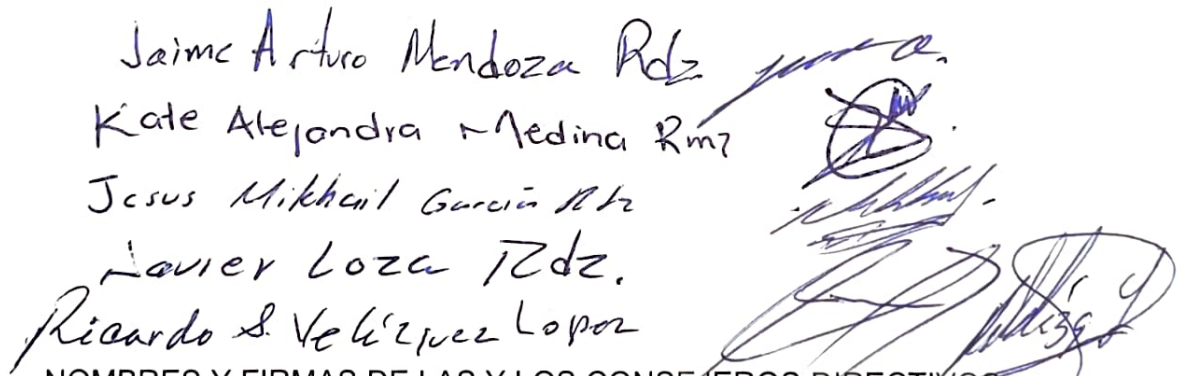 Jaime Arturo Mendoza Rdz.
Kate Alejandra Medina Rmz
Jesus Mikhail García
Javier Loza Rdz.
Ricardo S. Velázquez Lopez
NOMBRES Y FIRMAS DE LAS Y LOS CONSEJEROS DIRECTIVOS